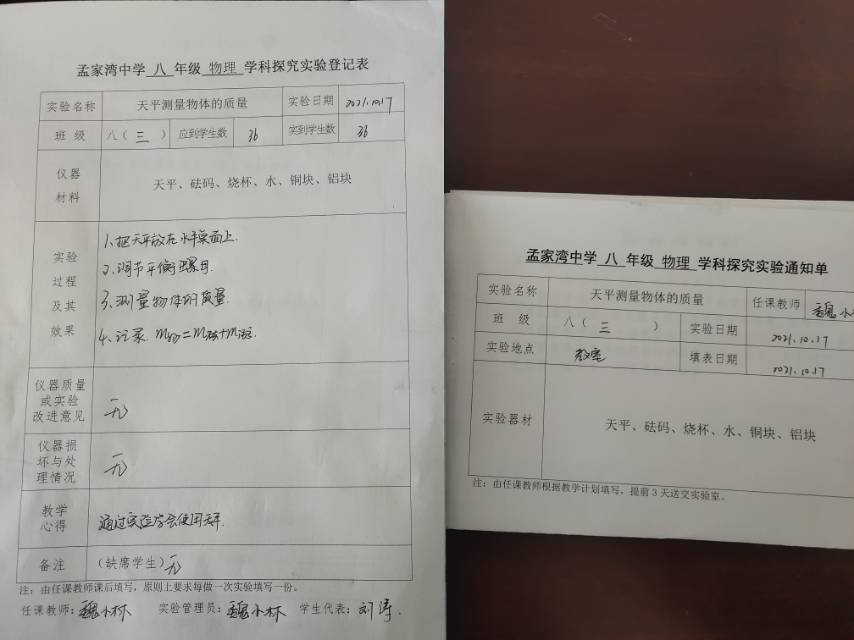 孟家湾中学 八 年级 物理 学科探究实验登记表
实验名称 天平测量物体的质量 实验日期 2021.10.17
班 级 八（三）应到学生数 36 实到学生数 36
仪器材料 天平、砝码、烧杯、水、铜块、铝块
实验过程及其效果
1、把天平放在水平桌面上.
2、调节平衡螺母.
3、测量物体的质量.
4、记录 m物=m砝+m游.
仪器质量或实验改进意见 无
仪器损坏与处理情况 无
教学心得 通过实验学会使用天平.
备注（缺席学生）无
注：由任课教师课后填写，原则上要求每做一次实验填写一份。
任课教师：魏小林 实验管理员：魏小林 学生代表：刘涛.
孟家湾中学 八 年级 物理 学科探究实验通知单
实验名称 天平测量物体的质量 任课教师 魏小
班 级 八（三）实验日期 2021.10.17
实验地点 教室 填表日期 2021.10.17
实验器材 天平、砝码、烧杯、水、铜块、铝块
注：由任课教师根据教学计划填写，提前3天送交实验室。